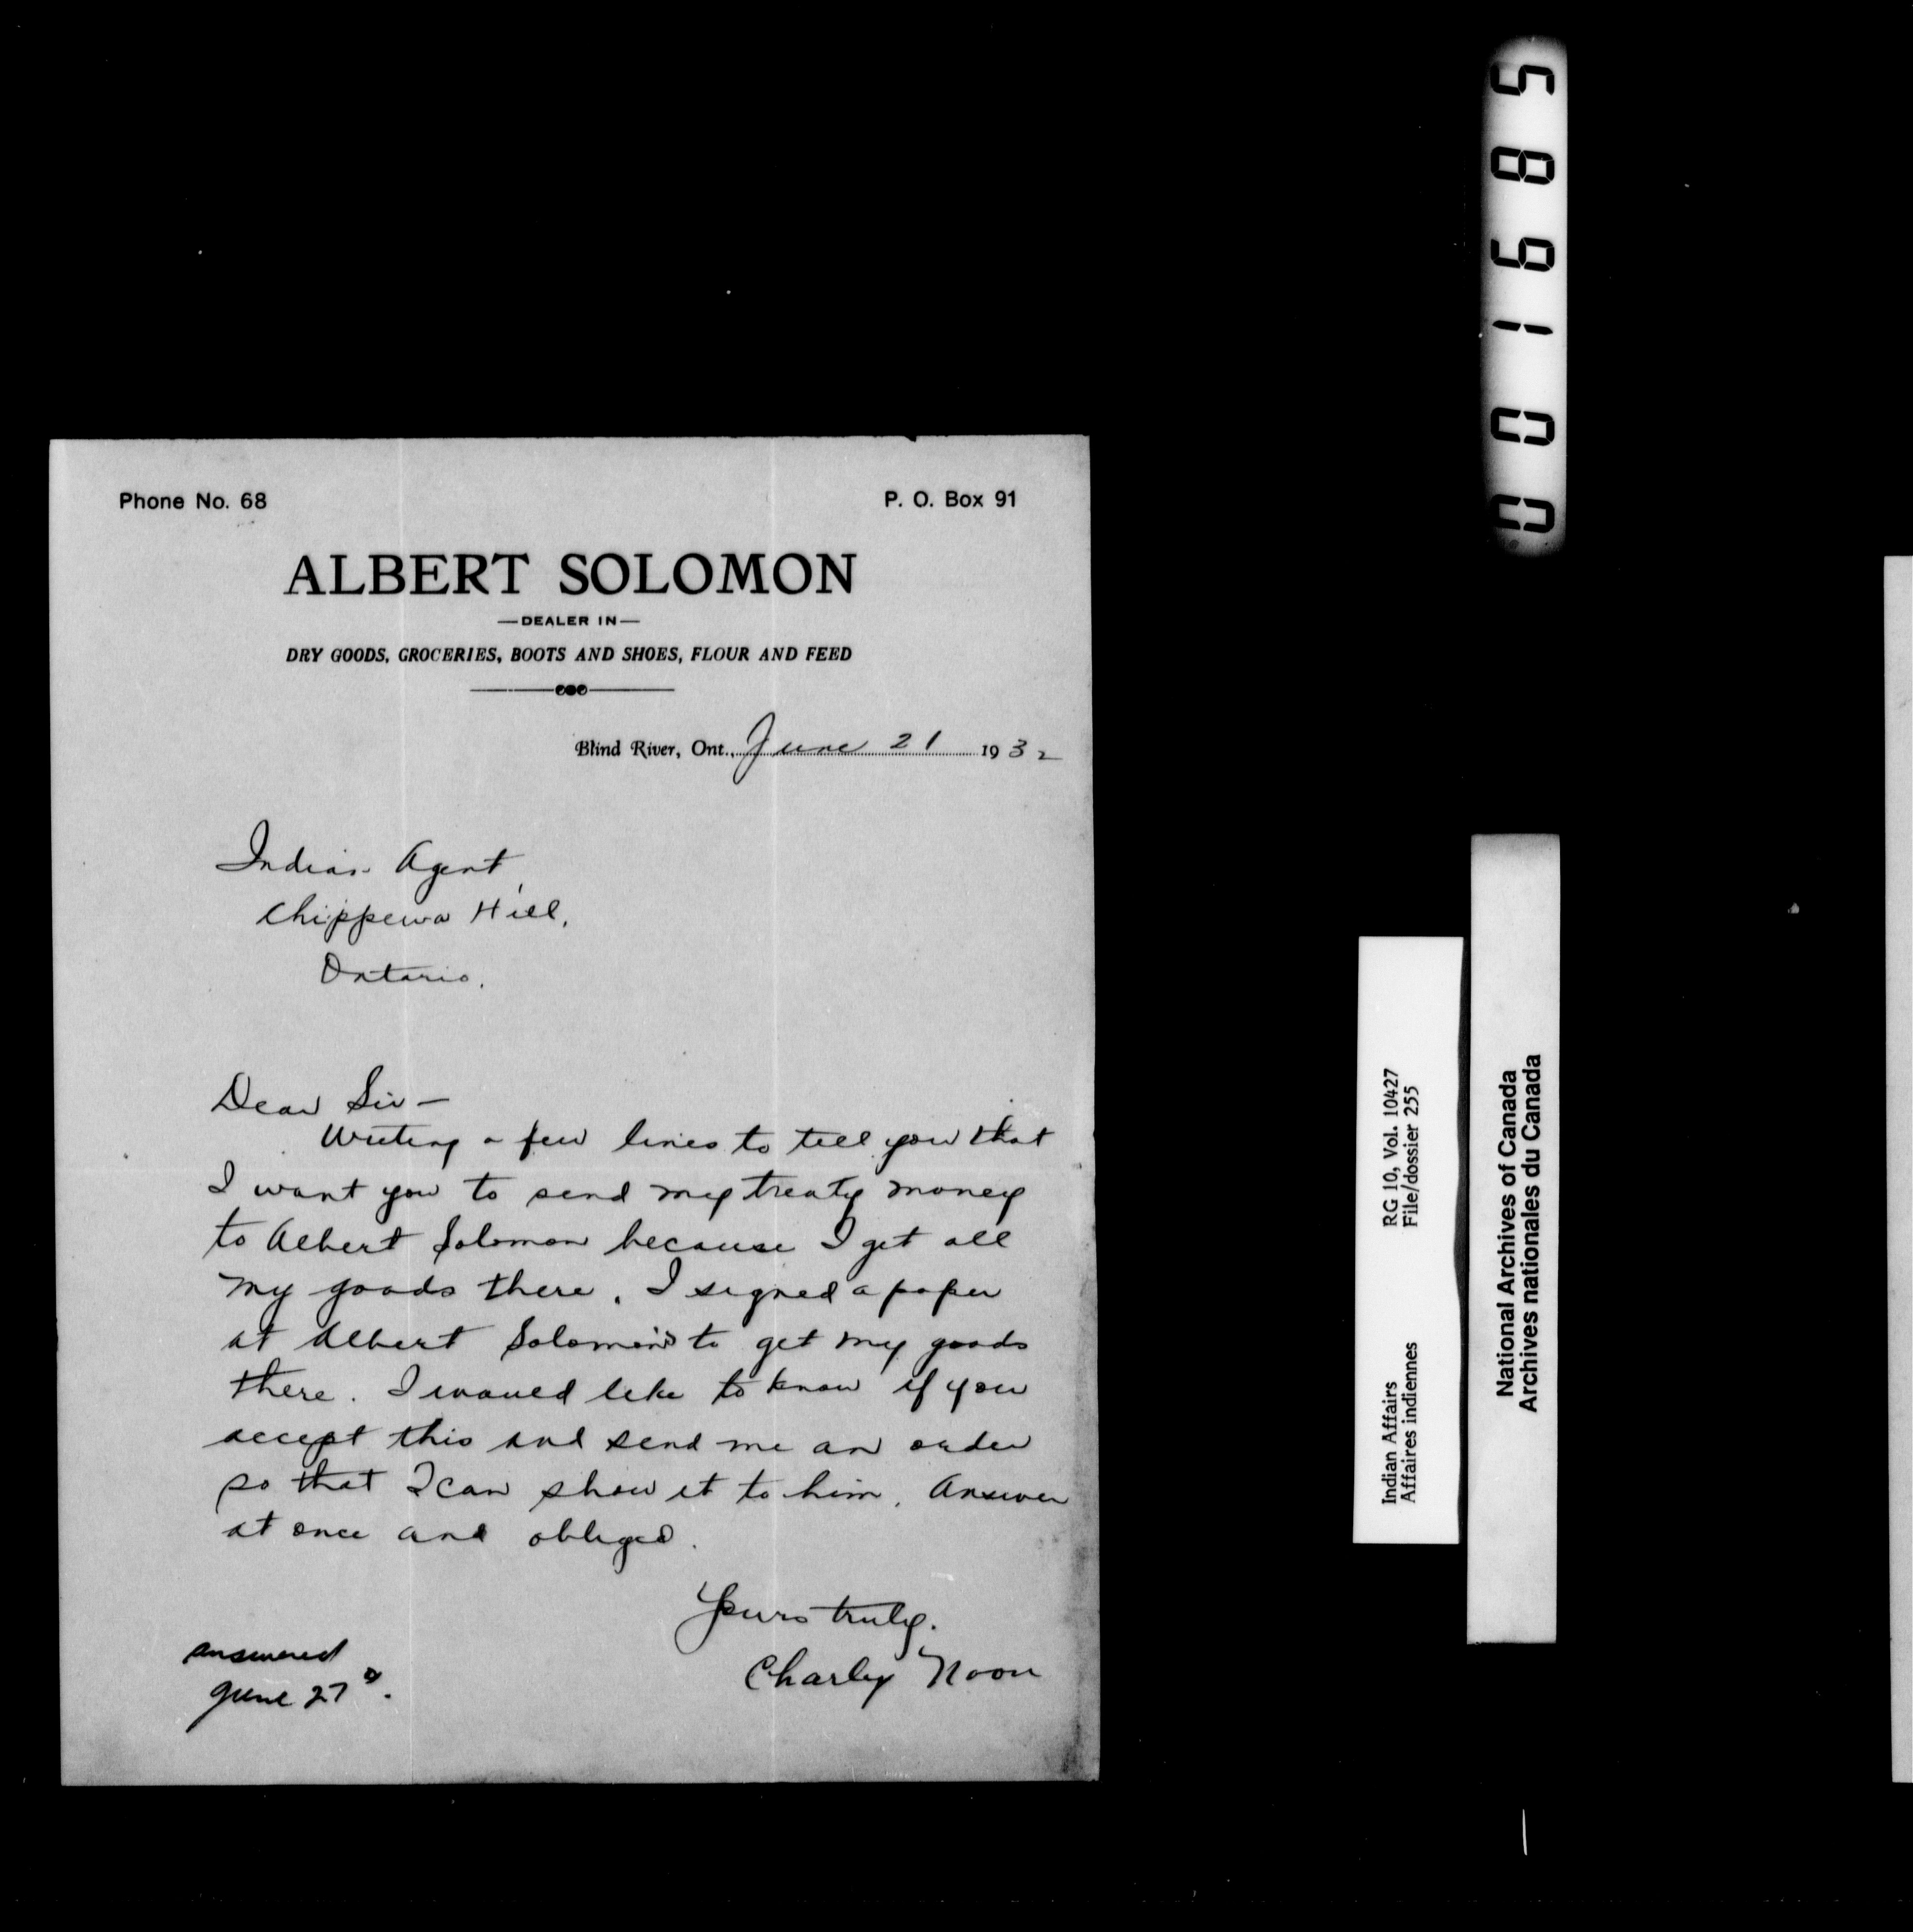 Phone No. 68
P. O. Box 91
ALBERT SOLOMON
—DEALER IN—
DRY GOODS, GROCERIES, BOOTS AND SHOES, FLOUR AND FEED
Blind River, Ont., June 21 1932
Indian Agent,
Chippewa Hill,
Ontario.
Dear Sir –
Writing a few lines to tell you that
I want you to send my treaty money
to Albert Solomon because I get all
my goods there. I signed a paper
at Albert Solomon's to get my goods
there. I would like to know if you
accept this and send me an order
so that I can show it to him. Answer
at once and obliged.
Yours truly.
Charley Noon
answered
June 27th.
001685
Indian Affairs RG 10, Vol. 10427
Affaires indiennes File/dossier 255
National Archives of Canada
Archives nationales du Canada